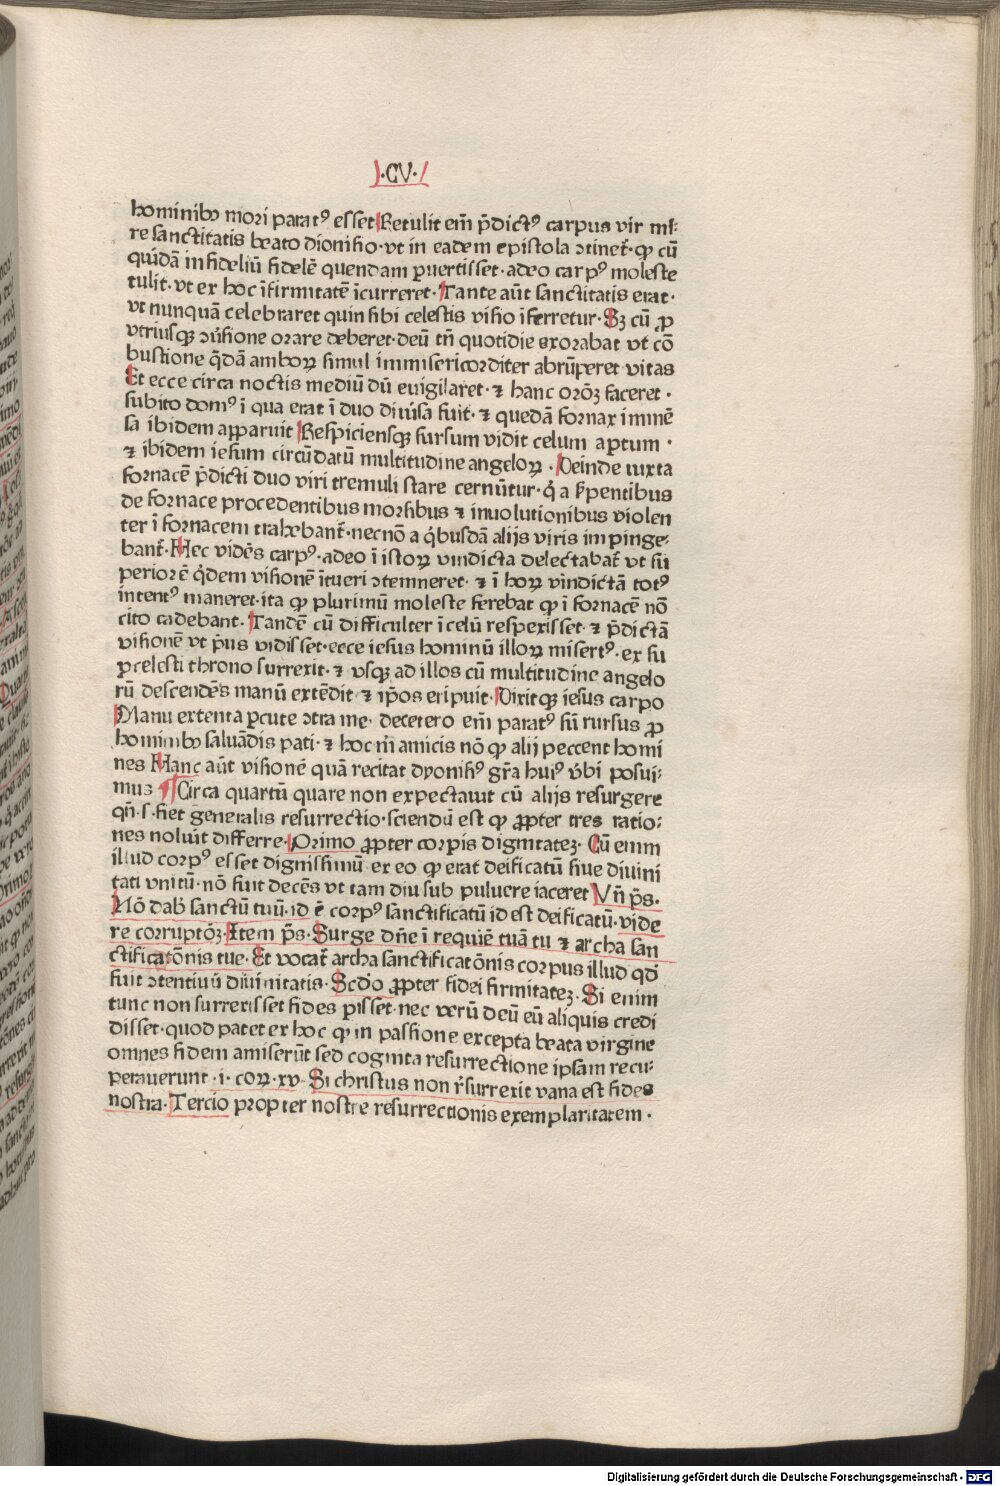 .CV.
hominibꝫ mori paratꝰ esset Retulit em̄ p̄dictꝰ carpus vir mi-
re sanctitatis beato dionisio·vt in eadem epistola ɔtinet̄·ꝙ cū
quidā infideliū fidelē quendam ꝑuertisset·adeo carpꝰ moleste
tulit·vt ex hoc ī firmitatē īcurreret·Tante aūt sanctitatis erat·
vt nunquā celebraret quin sibi celestis visio īferretur·Sꝫ cū ꝓ
vtriusqꝫ ɔūsione orare deberet·deū tn̄ quotidie exorabat vt cō
bustione q̄dā amboꝝ simul immisericorditer abrūperet vitas
Et ecce circa noctis mediū dū euigilaret·⁊ hanc orōꝫ faceret·
subito domꝰ ī qua erat ī duo diuisa fuit·⁊ quedā fornax immē
sa ibidem apparuit Respiciensqꝫ sursum vidit celum aptum·
⁊ ibidem iesum circūdatū multitudine angeloꝝ·Deinde iuxta
fornacē p̄dicti duo viri tremuli stare cernūtur·q̇ a s̄pentibus
de fornace procedentibus morsibus ⁊ inuolutionibus violen
ter ī fornacem trahebant̄·necnō a q̇busdā alijs viris impinge-
bant̄·Hec vidēs carpꝰ·adeo ī istoꝝ vindicta delectabat̄ vt sū
periorē q̇dem visionē ītueri ɔtemneret·⁊ ī hoꝝ vindictā totꝰ
intentꝰ maneret·ita ꝙ plurimū moleste ferebat ꝙ ī fornacē nō
cito cadebant·Tandē cū difficulter ī celū respexisset·⁊ p̄dictā
visionē vt p̄us vidisset·ecce iesus hominū illoꝝ misertꝰ·ex su
ꝑcelesti throno surrexit·⁊ vsqꝫ ad illos cū multitudine angelo
rū descendēs manū extēdit·⁊ ip̄os eripuit·Dixitqꝫ iesus carpo
Manu extenta ꝑcute ɔtra me·decetero em̄ paratꝰ sū rursus ꝓ
hominibꝫ saluādis pati·⁊ hoc m̄ amicis nō ꝙ alij peccent homi
nes Hanc aūt visionē quā recitat dyonisiꝰ gr̄a huiꝰ v̄bi posui-
mus ¶ Circa quartū quare non expectauit cū alijs resurgere
qn̄·s·fiet generalis resurrectio·sciendū est ꝙ ꝓpter tres ratio-
nes noluit differre·Primo ꝓpter corpis dignitateꝫ·Cū enim
illud corpꝰ esset dignissimū ex eo ꝙ erat deificatū siue diuini
tati vnitū·nō fuit decēs vt tam diu sub puluere iaceret Vn̄ p̄s·
Nō dab̄ sanctū tuū·id ē corpꝰ sanctificatū id est deificatū·vide
re corruptōꝫ·Item p̄s·Surge dn̄e ī requiē tuā tu ⁊ archa san
ctificatōnis tue·Et vocat̄ archa sanctificatōnis corpus illud qd̄
fuit ɔtentiuū diuinitatis·Scd̄o ꝓpter fidei firmitateꝫ·Si enim
tunc non surrexisset fides ꝑisset·nec verū deū eū aliquis credi
disset·quod patet ex hoc ꝙ in passione excepta beata virgine
omnes fidem amiserūt sed cognita resurrectione ipsam recu-
perauerunt·i·coꝝ·xv·Si christus non r̄surrexit vana est fides
nostra·Tercio propter nostre resurrectionis exemplaritatem·
Digitalisierung gefördert durch die Deutsche Forschungsgemeinschaft · DFG